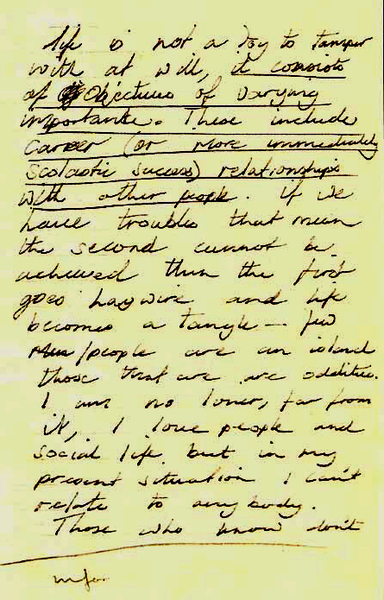 life is not a toy to tamper
with at will, it consists
of Objectives of varying
importance. These include
career (or more immediately
scolastic success) relationships
with other people. if we
have troubles that mean
the second cannot be
achieved then the first
goes haywire and life
becomes a tangle - few
men/people are an island
those that are, are oddities.
I am no loner, far from
it, I love people and
social life but in my
present situation I can't
relate to anybody.
Those who know don't